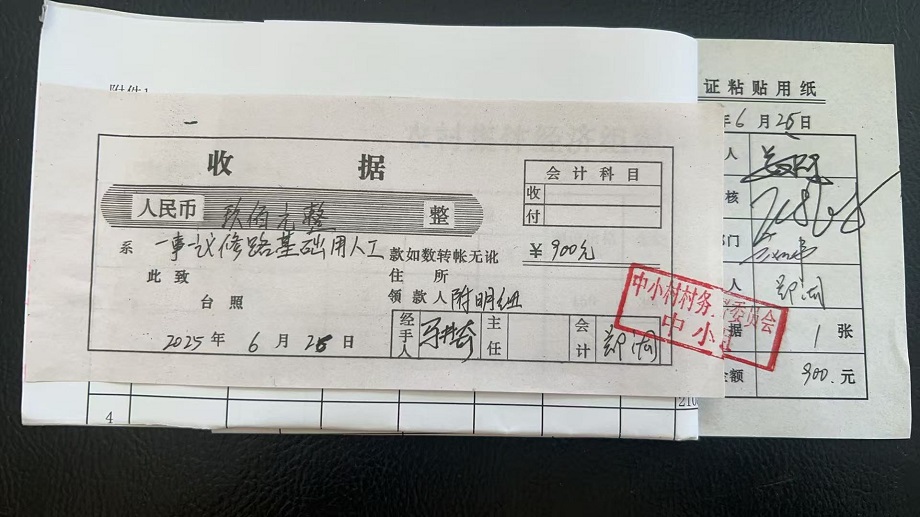 附件1
收 据
会计科目
收
付
人民币 玖佰元整 整
系 一事一议修路基础用人工 款如数转帐无讹 ￥900元
此致 住 所
台照 领款人 附明细
2025年 6 月 25 日
经手人 主任 会计
中小村村务 委员会
中小
4
210
证粘贴用纸
年 6 月 25 日
人
核
部门
人
据 1 张
金额 900.元